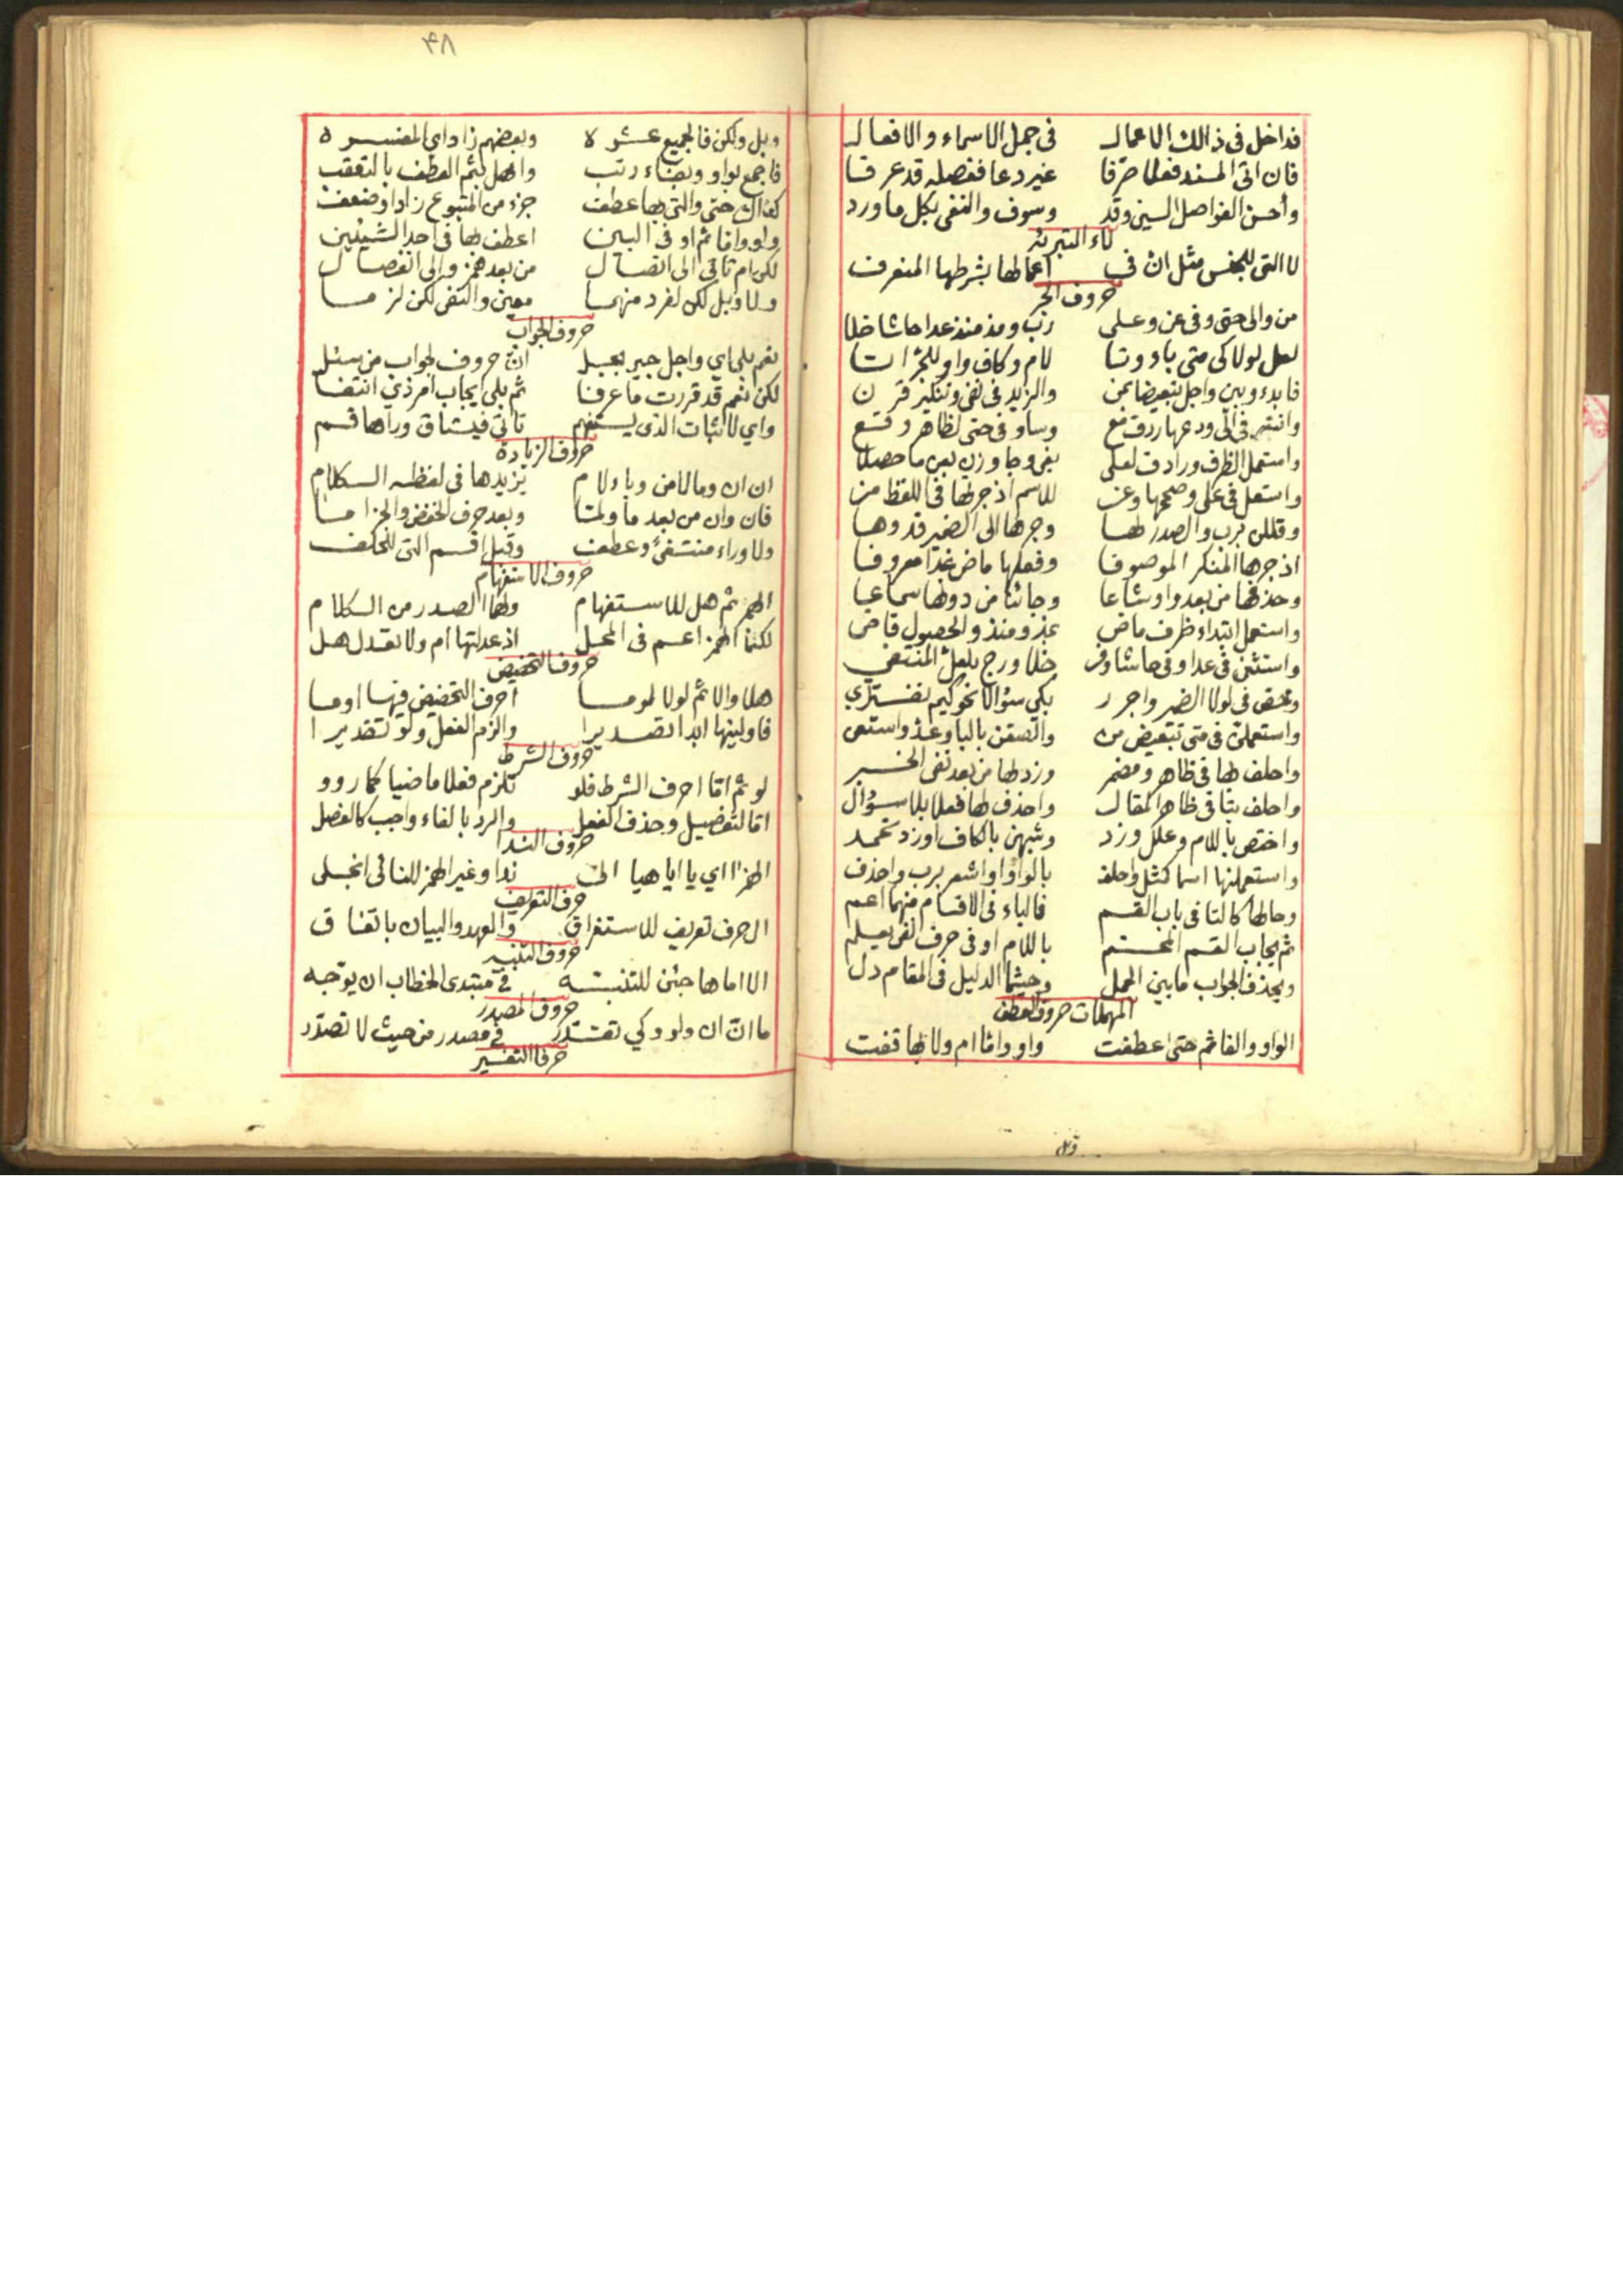 فداخل فى ذالك الاعمال في جمل الاسماء والافعال
فان اتى المسند فعلا صرفا غير دعا ففصله قد عرفا
وأحسن الفواصل السين وقد وسوف والنفى بكل ما ورد
لاء التبرئة
لا التى للجنس مثل ان فى اعمالها بشرطها المنعرف
حروف الجر
من والى حتى وفى عن وعلى رب ومذ منذ عدا حاشا خلا
لعل لولا كى متى باء وتا لام وكاف واو للجر اتا
فابدء وبين واجل تبعيضا بمن والزيد فى نفى وتنكير قرن
وانته فى الى ودعها ردف مع وساو فى حتى لظاهر وقع
واستعمل الظرف ورادف لعلى بفى وجاوزن بعن ما حصلا
واستعل فى على وصحبها وعن للاسم اذ جر لها فى اللفظ من
وقللن برب والصدر لها وجرها الى الضمير قد وها
اذ جرها المنكر الموصوفا وفعلها ماض غدا معروفا
وحذفها من بعد واو شاعا وجائنا من دونها سماعا
واستعمل ابتداء ظرف ماض بمذ ومنذ والحصول قاض
واستثن فى عدا وفى حاشا وفى خلا ورج بلعل المنتفى
وخص فى لولا الضمير واجرر بكى سؤالا نحو كيم تفترى
واستعملن فى متى تبعيض من والصقن بالبا وعد واستعن
واحلف لها فى ظاهر ومضمر وزدلها من بعد نفى الخبر
واحلف بتا فى ظاهر المقال واحذف لها فعلا بلا سؤال
واختص باللام وعلل وزد وشبهن بالكاف اوزد تحمد
واستعملنها اسما كمثل واحلف بالواو او اشعر برب واحذف
وحالها كالتا فى باب القسم فالباء فى الاقسام منهما اعم
ثم يجاب القسم المحتم باللام او فى حرف النفى يعلم
ويحذف الجواب ما بين الجمل وحيثما الدليل فى المقام دل
المهملات حروف العطف
الواو والفا ثم حتى اعطفت واو واما ام ولا بها قفت
٤٨
وبل ولكن فالجميع عشره وبعضهم زاد اى المفسره
فاجمع بواو وبفاء رتب واهمل بثم العطف بالتعقب
كذاك حتى والتى بها عطف جزء من المتبوع زاد او ضعف
واو واما ثم او فى البين اعطف بها فى احد الشيئين
لكن ام تاتى الى اتصال من بعد همز والى انفصال
ولا وبل لكن لفرد منهما معنى والنفى لكن لزما
حروف الجواب
نعم بلى اي واجل جير بجل ان حروف لجواب من سئل
لكن نعم قد قررت ما عرفا ثم بلى يجاب امر ذي انتفا
واي لاثبات الذى يستفهم تاتى فيشتاق وراها قسم
حروف الزيادة
ان ان وما لا من وباء لام نزيدها فى لفظه الكلام
فان وان من بعد ما ولما وبعد حرف الخفض والجزا ما
ولا وراء منتفى وعطف وقبل اقسم التى للحلف
حروف الاستفهام
الهمز ثم هل للاستفهام ولها الصدر من الكلام
لكنما الهمز اعم فى المحل اذ عدلتها ام ولا تعدل هل
حروف التحضيض
هلا والا ثم لولا لوما احرف التحضيض فيها اوما
فاولينها ابدا تصديرا والزم الفعل ولو تقديرا
حروف الشرط
لو ثم اما احرف الشرط فلو تلزم فعلا ماضيا كما رووا
اما لتفضيل وحذف الفعل والرد بالفاء واجب كالفصل
حروف الندا
الهمز ا اي يا ايا هيا الى ندا وغير الهمز للنائى انجلى
حرف التعريف
ال حرف تعريف للاستغراق والعهد والبيان باتفاق
حروف التنبيه
الا اما ها جئن للتنبه فى مبتدى الخطاب ان يوجه
حروف المصدر
ما ان ان ولو وكي تقتدر فى مصدر من حيث لا تصدر
حرفا التفسير